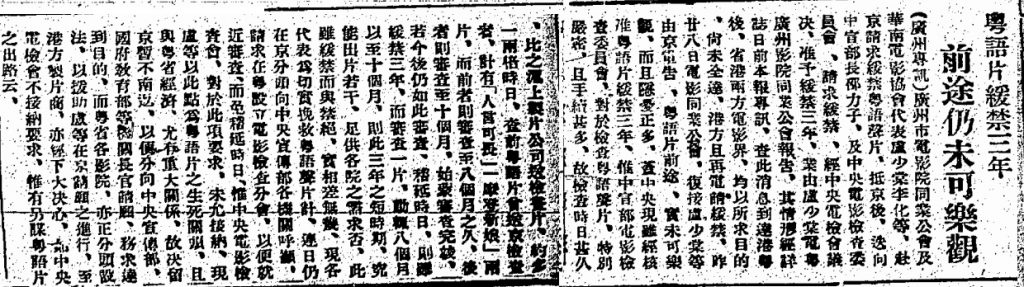 粵語片緩禁三年
前途仍未可樂觀
(廣州專訊)廣州市電影院同業公會及
華南電影協會代表盧少棠李化等、赴
京請求緩禁粵語聲片、抵京後、迭向
中宣部長邵力子、及中央電影檢查委
員會、請求緩禁、經中央電檢會議
決、准予緩禁三年、業由盧少棠電粵
廣州影院同業公會報告、其情形經詳
誌日前本報專訊、查此消息到達港粵
後、省港兩方電影界、均以所求目的
、尚未全達、港方且再電請緩禁、昨
廿八日電影同業公會、復接盧少棠等
由京電告、粵語片前途、實未可樂
觀、而且隱憂正多、蓋中央現雖經核
准粵語片緩禁三年、惟中宣部電影檢
查委員會、對於檢查粵語聲片、特別
嚴密、且手續甚多、故檢查時日甚久
、比之滬上製片公司送檢聲片、約多
一兩倍時日、查前粵語片曾送京檢查
者、計有「人言可畏」「新娘」兩
片、而前者則審查至八個月之久、後
者則審查至十個月、始獲審查完竣、
若今後仍如此審查、稽延時日、則雖
緩禁三年、而審查一片、動輒八個月
以至十個月、則此三年之短時期、究
能出片若干、足供各院之需求否、此
雖緩禁而與禁絕、實相差無幾、現各
代表為切實挽救粵語聲片計、連日仍
在京分頭向中央宣傳部各機關呼籲、
請求在粵設立電影檢查分會、以便就
近審查、而免稽延時日、惟中央電影檢
查會、對於此項要求、未允接納、現
盧等以此點為粵語片之生死關頭、且
與粵省經濟、尤有重大關係、故決留
京暫不南返、以便分向中央宣傳部、
國府教育部等機關長官請願、務求達
到目的、而粵省各影院、亦正分頭設
法、以援助盧等在京請願之進行、至
港方製片商、亦經下大決心、如中央
電檢會不接納要求、惟有另謀粵語片
之出路云、